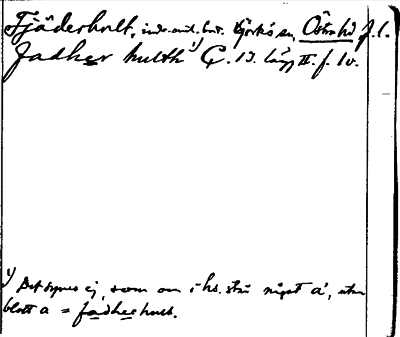 Fjäderhult, inds.-mil.-bost. Björkö sn, Östra hd J. l.
Jadher hulth ¹) C. 13. lägg II. f. 10.
¹) Det synes ej, som om i hs. står något å, utan
blott a = fadheehult.